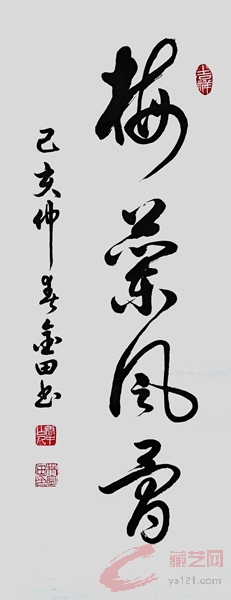 梅蘭风骨
己亥仲春金田书
吉祥
藏艺网
ys121.com